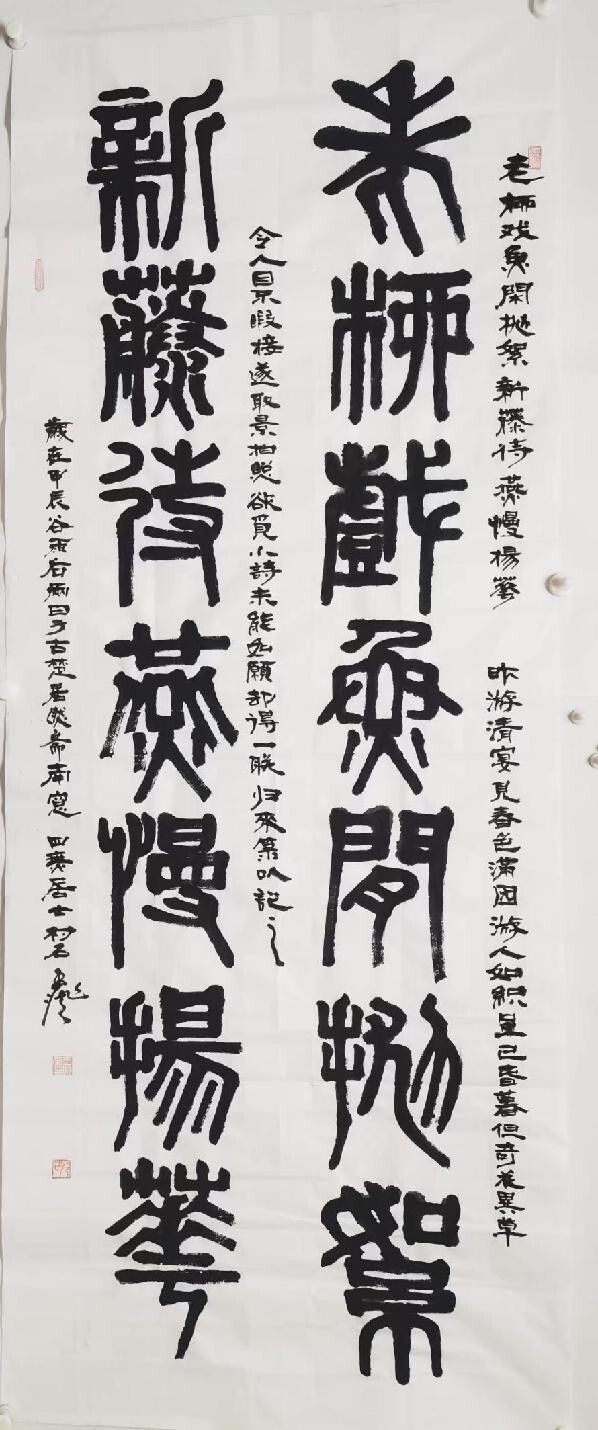 老柳戏魚閑抛絮新藤待燕慢揚華 昨游清宴見春色满园游人如织虽已昏暮但奇花異草
老柳戲魚閒抛絮
令人目不暇接遂取景拍照欲覓小詩未能如願却得一联归來篆以記之
新藤待燕慢揚華
歲在甲辰谷雨后两日于古楚居然斋南窗 居士村石